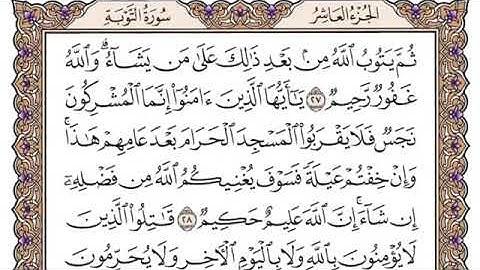 الجزء العاشر سورة التوبة
ثُمَّ يَتُوبُ ٱللَّهُ مِنۢ بَعْدِ ذَٰلِكَ عَلَىٰ مَن يَشَآءُۗ وَٱللَّهُ
غَفُورٌ رَّحِيمٌ ٢٧ يَٰٓأَيُّهَا ٱلَّذِينَ ءَامَنُوٓا۟ إِنَّمَا ٱلْمُشْرِكُونَ
نَجَسٌ فَلَا يَقْرَبُوا۟ ٱلْمَسْجِدَ ٱلْحَرَامَ بَعْدَ عَامِهِمْ هَٰذَاۚ
وَإِنْ خِفْتُمْ عَيْلَةً فَسَوْفَ يُغْنِيكُمُ ٱللَّهُ مِن فَضْلِهِۦٓ
إِن شَآءَۚ إِنَّ ٱللَّهَ عَلِيمٌ حَكِيمٌ ٢٨ قَٰتِلُوا۟ ٱلَّذِينَ
لَا يُؤْمِنُونَ بِٱللَّهِ وَلَا بِٱلْيَوْمِ ٱلْءَاخِرِ وَلَا يُحَرِّمُونَ